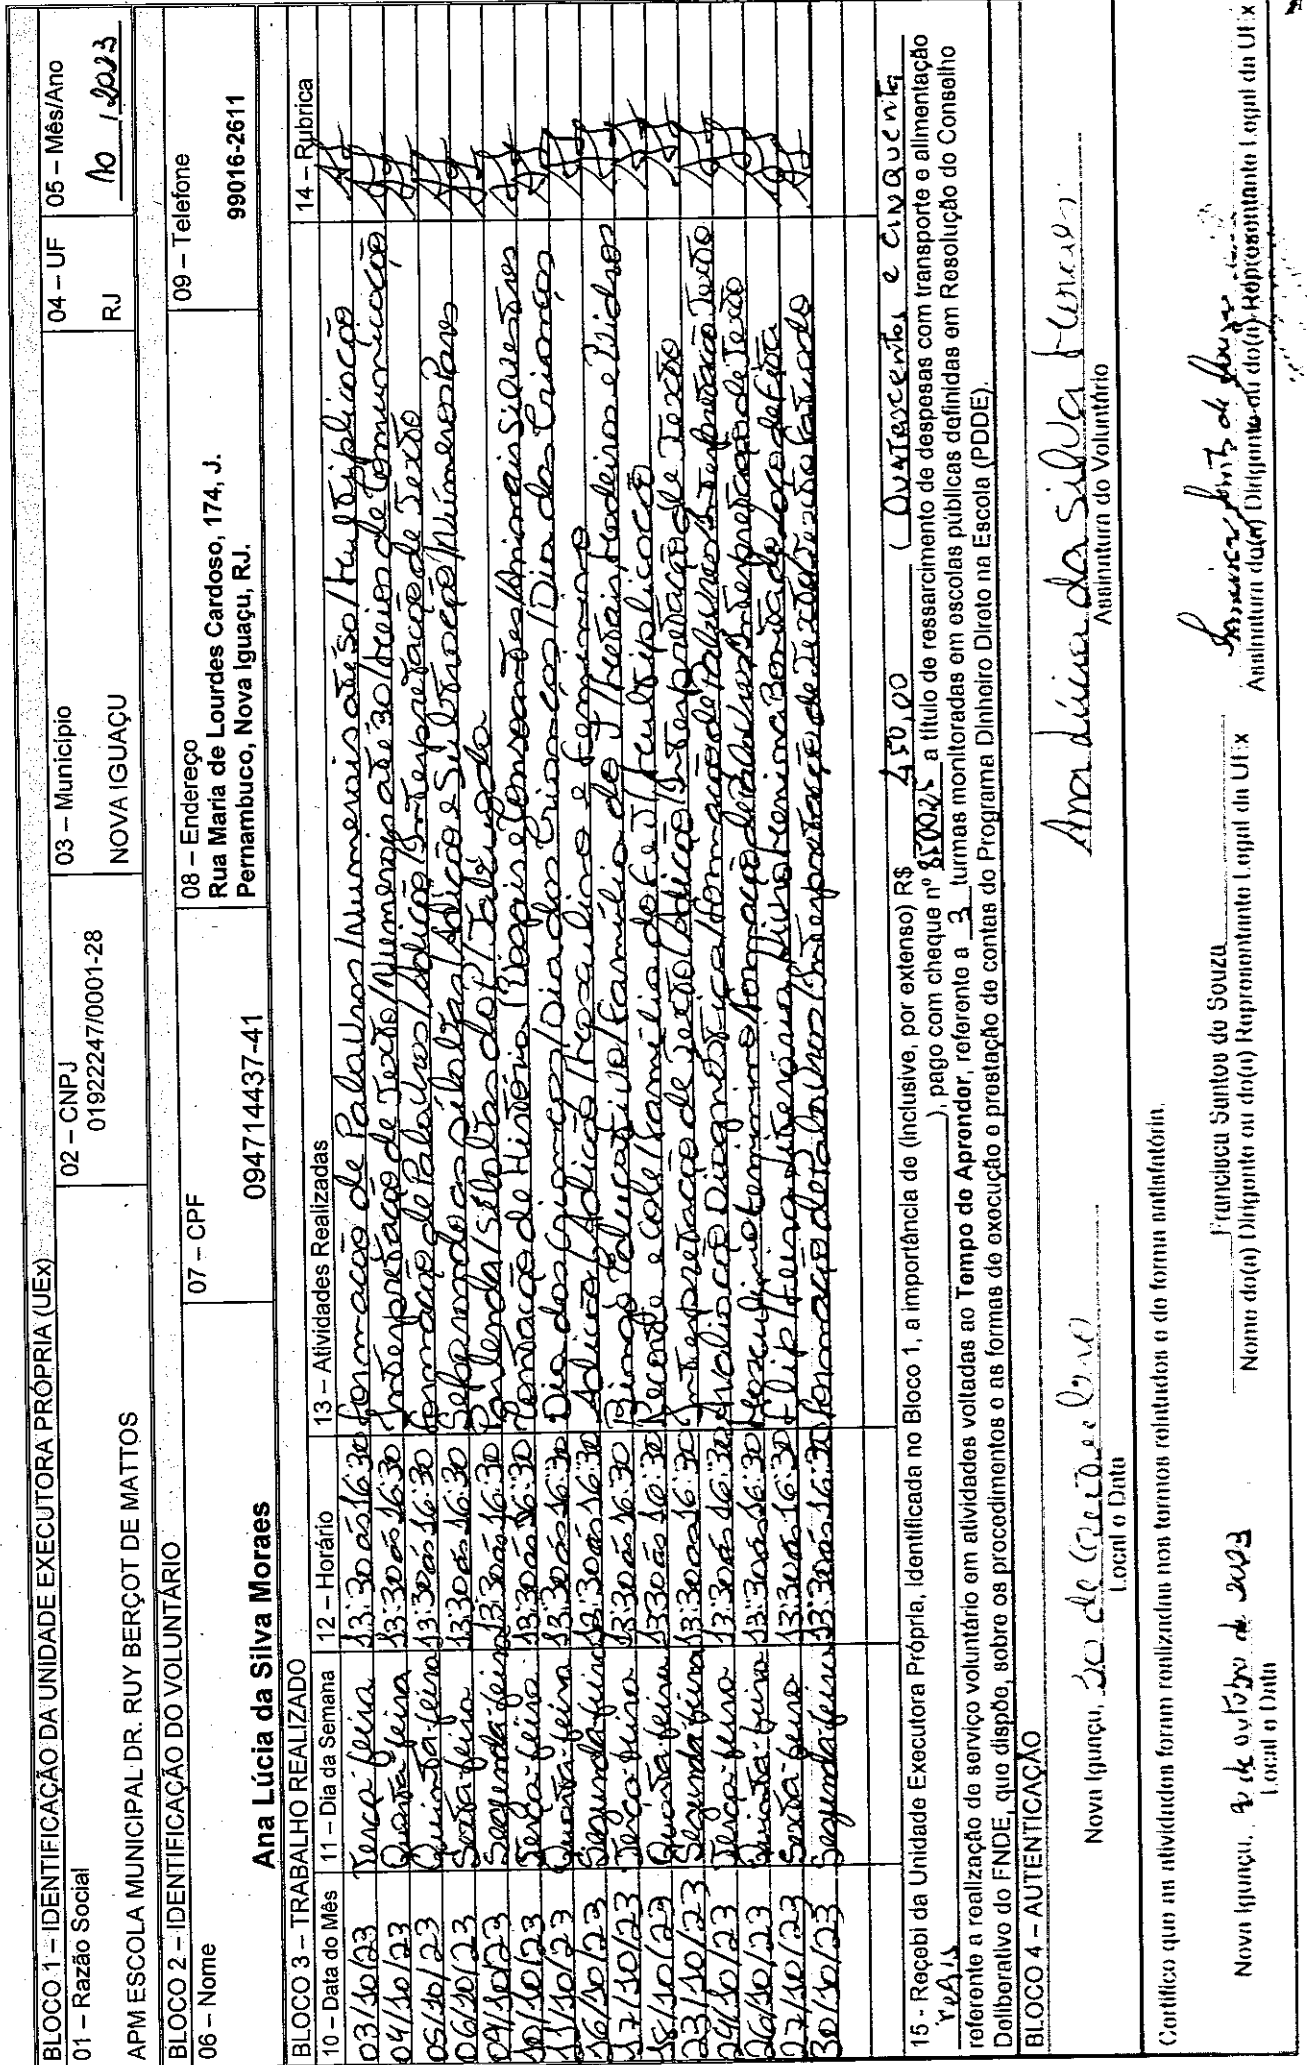 BLOCO 1 – IDENTIFICAÇÃO DA UNIDADE EXECUTORA PRÓPRIA (UEx)
01 – Razão Social
APM ESCOLA MUNICIPAL DR. RUY BERÇOT DE MATTOS
02 – CNPJ
01922247/0001-28
03 – Município
NOVA IGUAÇU
04 – UF
RJ
05 – Mês/Ano
10 / 2023
BLOCO 2 – IDENTIFICAÇÃO DO VOLUNTÁRIO
06 – Nome
Ana Lúcia da Silva Moraes
07 – CPF
094714437-41
08 – Endereço
Rua Maria de Lourdes Cardoso, 174, J.
Pernambuco, Nova Iguaçu, RJ.
09 – Telefone
99016-2611
BLOCO 3 – TRABALHO REALIZADO
10 – Data do Mês 11 – Dia da Semana 12 – Horário 13 – Atividades Realizadas 14 – Rubrica
03/10/23 Terça-feira 13:30 ás 16:30 Formação de Palavras/Numerais até 50/Multiplicação
04/10/23 Quarta-feira 13:30 ás 16:30 Interpretação de Texto/Numerais até 30/Meios de Comunicação
05/10/23 Quinta-feira 13:30 ás 16:30 Formação de Palavras/Adição/Interpretação de Texto
06/10/23 Sexta-feira 13:30 ás 16:30 Separando as sílabas/Adição e Subtração/Números Pares
09/10/23 Segunda-feira 13:30 ás 16:30 Parlenda/Sílabas do P/Tabuada
10/10/23 Terça-feira 13:30 ás 16:30 Contação de História/Vogais e Consoantes/Animais Silvestres
11/10/23 Quarta-feira 13:30 ás 16:30 Dia das Crianças/Dia das Crianças/Dia das Crianças
16/10/23 Segunda-feira 13:30 ás 16:30 Adição/Adição/Masculino e Feminino
17/10/23 Terça-feira 13:30 ás 16:30 Bingo Educativo/Família do J/Metais, Madeiras e Vidros
18/10/23 Quarta-feira 13:30 ás 16:30 Recorte e Cole/Família do F e J/Multiplicação
23/10/23 Segunda-feira 13:30 ás 16:30 Interpretação de Texto/Adição/Interpretação de Texto
24/10/23 Terça-feira 13:30 ás 16:30 Avaliação Diagnóstica/Formação de Palavras/Interpretação Texto
26/10/23 Quinta-feira 13:30 ás 16:30 Masculino e Feminino/Formação de Palavras/Interpretação de Texto
27/10/23 Sexta-feira 13:30 ás 16:30 Flip/Feira Literária/Menina Bonita do Laço de Fita
30/10/23 Segunda-feira 13:30 ás 16:30 Formação de Palavras/Interpretação de Texto/Texto Fatiado
15 - Recebi da Unidade Executora Própria, Identificada no Bloco 1, a importância de (Inclusive, por extenso) R$ 450,00 ( Quatrocentos e cinquenta
reais ), pago com cheque nº a título de ressarcimento de despesas com transporte e alimentação
referente a realização do serviço voluntário em atividades voltadas ao Tempo de Aprender, referente a 3 turmas monitoradas em escolas públicas definidas em Resolução do Conselho
Deliberativo do FNDE, que dispõe, sobre os procedimentos e as formas de execução e prestação de contas do Programa Dinheiro Direto na Escola (PDDE).
BLOCO 4 – AUTENTICAÇÃO
Nova Iguaçu, 30 de
Local e Data
Ana Lúcia da Silva Moraes
Assinatura do Voluntário
Certifico que as atividades foram realizadas nos termos relatados e de forma satisfatória.
Nova Iguaçu, de outubro de 2023
Local e Data
Francisca Santos de Souza
Nome do(a) Dirigente ou do(a) Representante Legal da UEx
Assinatura do(a) Dirigente ou do(a) Representante Legal da UEx